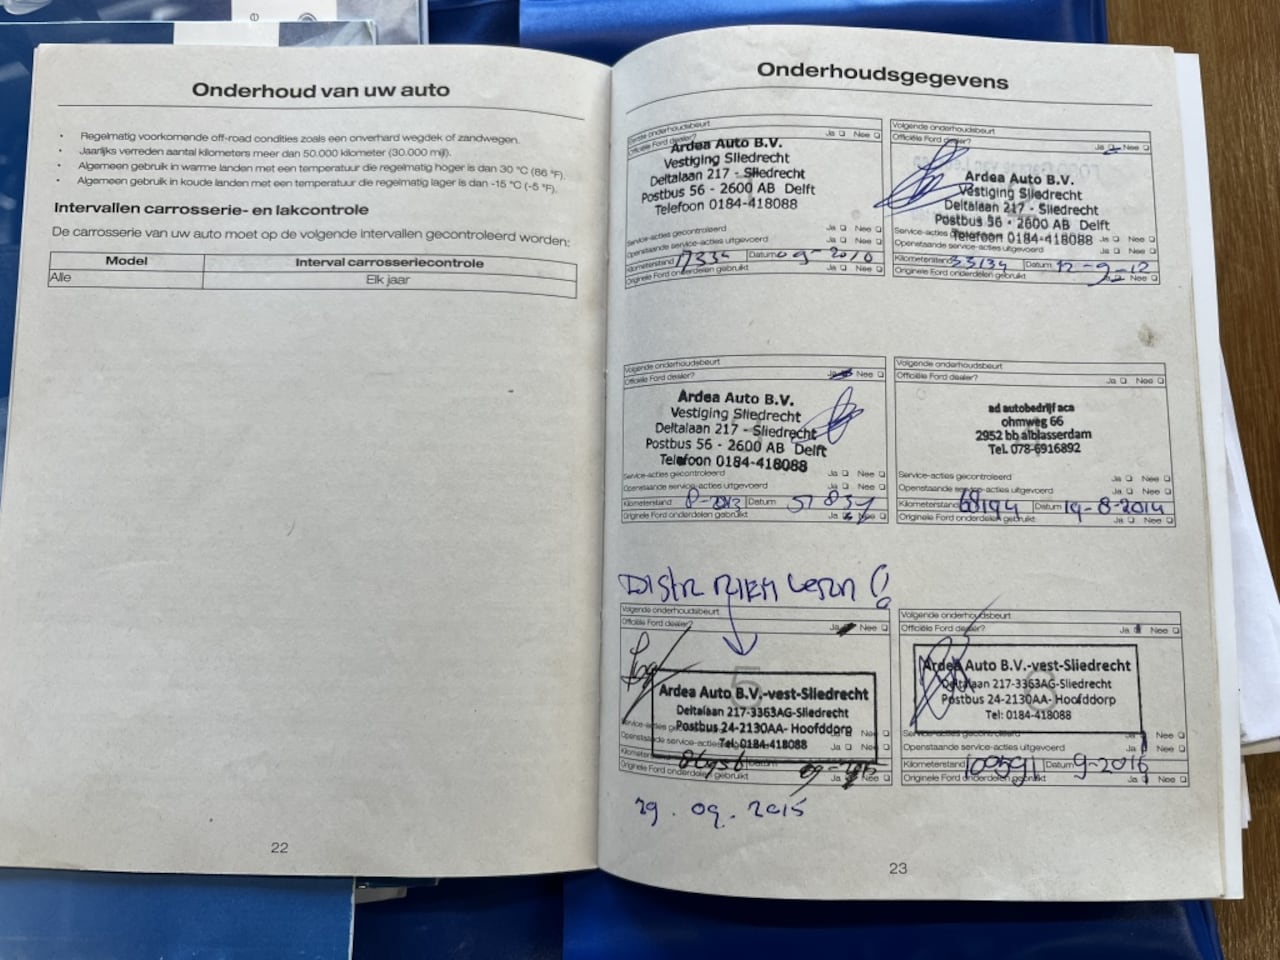 Onderhoud van uw auto
• Regelmatig voorkomende off-road condities zoals een onverhard wegdek of zandwegen.
• Jaarlijks verreden aantal kilometers meer dan 50.000 kilometer (30.000 mijl).
• Algemeen gebruik in warme landen met een temperatuur die regelmatig hoger is dan 30 °C (86 °F).
• Algemeen gebruik in koude landen met een temperatuur die regelmatig lager is dan -15 °C (-5 °F).
Intervallen carrosserie- en lakcontrole
De carrosserie van uw auto moet op de volgende intervallen gecontroleerd worden:
Model Interval carrosseriecontrole
Alle Elk jaar
22
Onderhoudsgegevens
Eerste onderhoudsbeurt
Officiële Ford dealer? Ja Nee
Ardea Auto B.V.
Vestiging Sliedrecht
Deltalaan 217 - Sliedrecht
Postbus 56 - 2600 AB Delft
Telefoon 0184-418088
Service-acties gecontroleerd Ja Nee
Openstaande service-acties uitgevoerd Ja Nee
Kilometerstand 17334 Datum 09-2010
Originele Ford onderdelen gebruikt Ja Nee
Volgende onderhoudsbeurt
Officiële Ford dealer? Ja Nee
Ardea Auto B.V.
Vestiging Sliedrecht
Deltalaan 217 - Sliedrecht
Postbus 56 - 2600 AB Delft
Telefoon 0184-418088
Service-acties Ja Nee
Openstaande service-acties uitgevoerd Ja Nee
Kilometerstand 33134 Datum 12-9-12
Originele Ford onderdelen gebruikt Ja Nee
Volgende onderhoudsbeurt
Officiële Ford dealer? Ja Nee
Ardea Auto B.V.
Vestiging Sliedrecht
Deltalaan 217 - Sliedrecht
Postbus 56 - 2600 AB Delft
Telefoon 0184-418088
Service-acties gecontroleerd Ja Nee
Openstaande service-acties uitgevoerd Ja Nee
Kilometerstand 8-2013 Datum 57837
Originele Ford onderdelen gebruikt Ja Nee
Volgende onderhoudsbeurt
Officiële Ford dealer? Ja Nee
ad autobedrijf aca
ohmweg 66
2952 bb alblasserdam
Tel. 078-6916892
Service-acties gecontroleerd Ja Nee
Openstaande service-acties uitgevoerd Ja Nee
Kilometerstand 68194 Datum 19-8-2014
Originele Ford onderdelen gebruikt Ja Nee
Distr riem verv!
Volgende onderhoudsbeurt
Officiële Ford dealer? Ja Nee
5
Ardea Auto B.V.-vest-Sliedrecht
Deltalaan 217-3363AG-Sliedrecht
Postbus 24-2130AA- Hoofddorp
Tel: 0184-418088
Service-acties Nee
Openstaande service-acties Ja Nee
Kilometerstand Datum 09-2015
Originele Ford onderdelen gebruikt Ja Nee
29.09.2015
Volgende onderhoudsbeurt
Officiële Ford dealer? Ja Nee
6
Ardea Auto B.V.-vest-Sliedrecht
Deltalaan 217-3363AG-Sliedrecht
Postbus 24-2130AA- Hoofddorp
Tel: 0184-418088
Service-acties gecontroleerd Nee
Openstaande service-acties uitgevoerd Ja Nee
Kilometerstand 100591 Datum 9-2016
Originele Ford onderdelen gebruikt Ja Nee
23